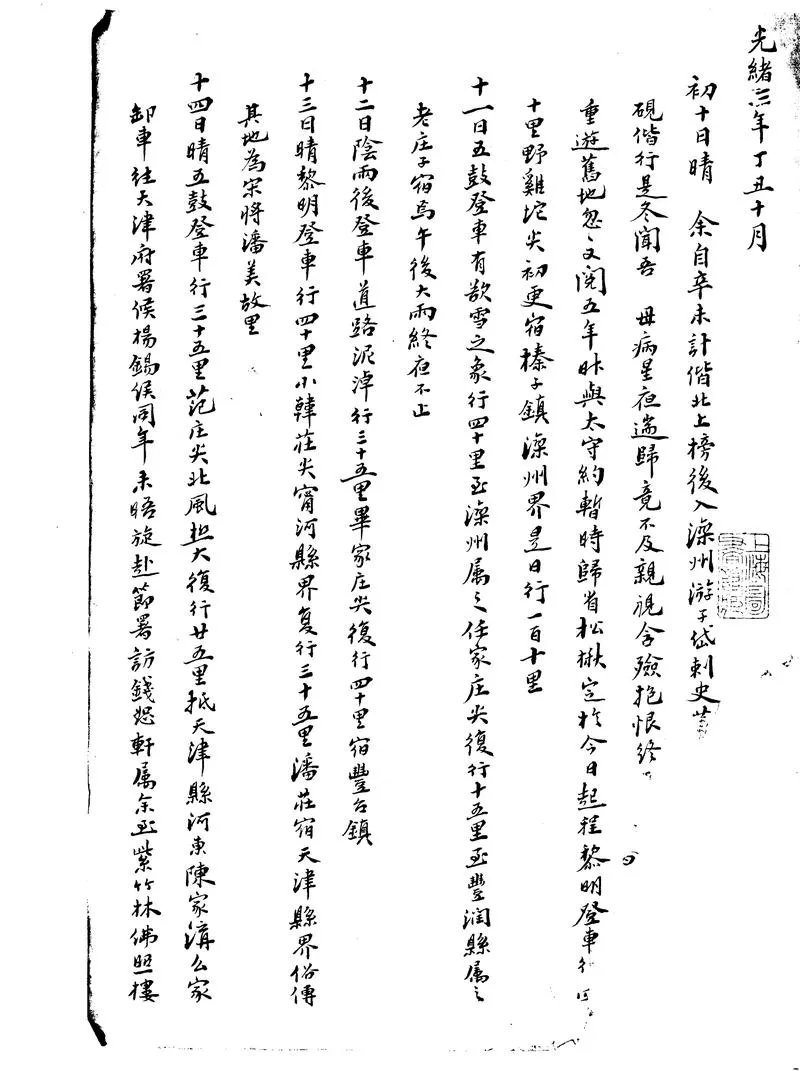 光緒三年丁丑十月
初十日晴　余自辛未計偕北上榜後入灤州游子岱刺史
硯偕行是冬聞吾　母病星夜遄歸竟不及親視含殮抱恨終
重遊舊地忽々又閱五年昨與太守約暫時歸省松楸定於今日起程黎明登車行
十里野雞坨尖初更宿榛子鎮灤州界是日行一百十里
十一日五鼓登車有欲雪之象行四十里至灤州属之任家庄尖復行十五里至豐润縣属之
老庄子宿焉午後大雨終夜不止
十二日陰雨後登車道路泥濘行三十五里畢家庄尖復行四十里宿豐台鎮
十三日晴黎明登車行四十里小韓莊尖甯河縣界复行三十五里潘莊宿天津縣界俗傳
其地為宋將潘美故里
十四日晴五鼓登車行三十五里范庄尖北風担大復行廿五里抵天津縣河東陳家溝么家
卸車往天津府署候楊錫侯同年未晤旋赴節署訪錢恕軒属余至紫竹林佛照樓